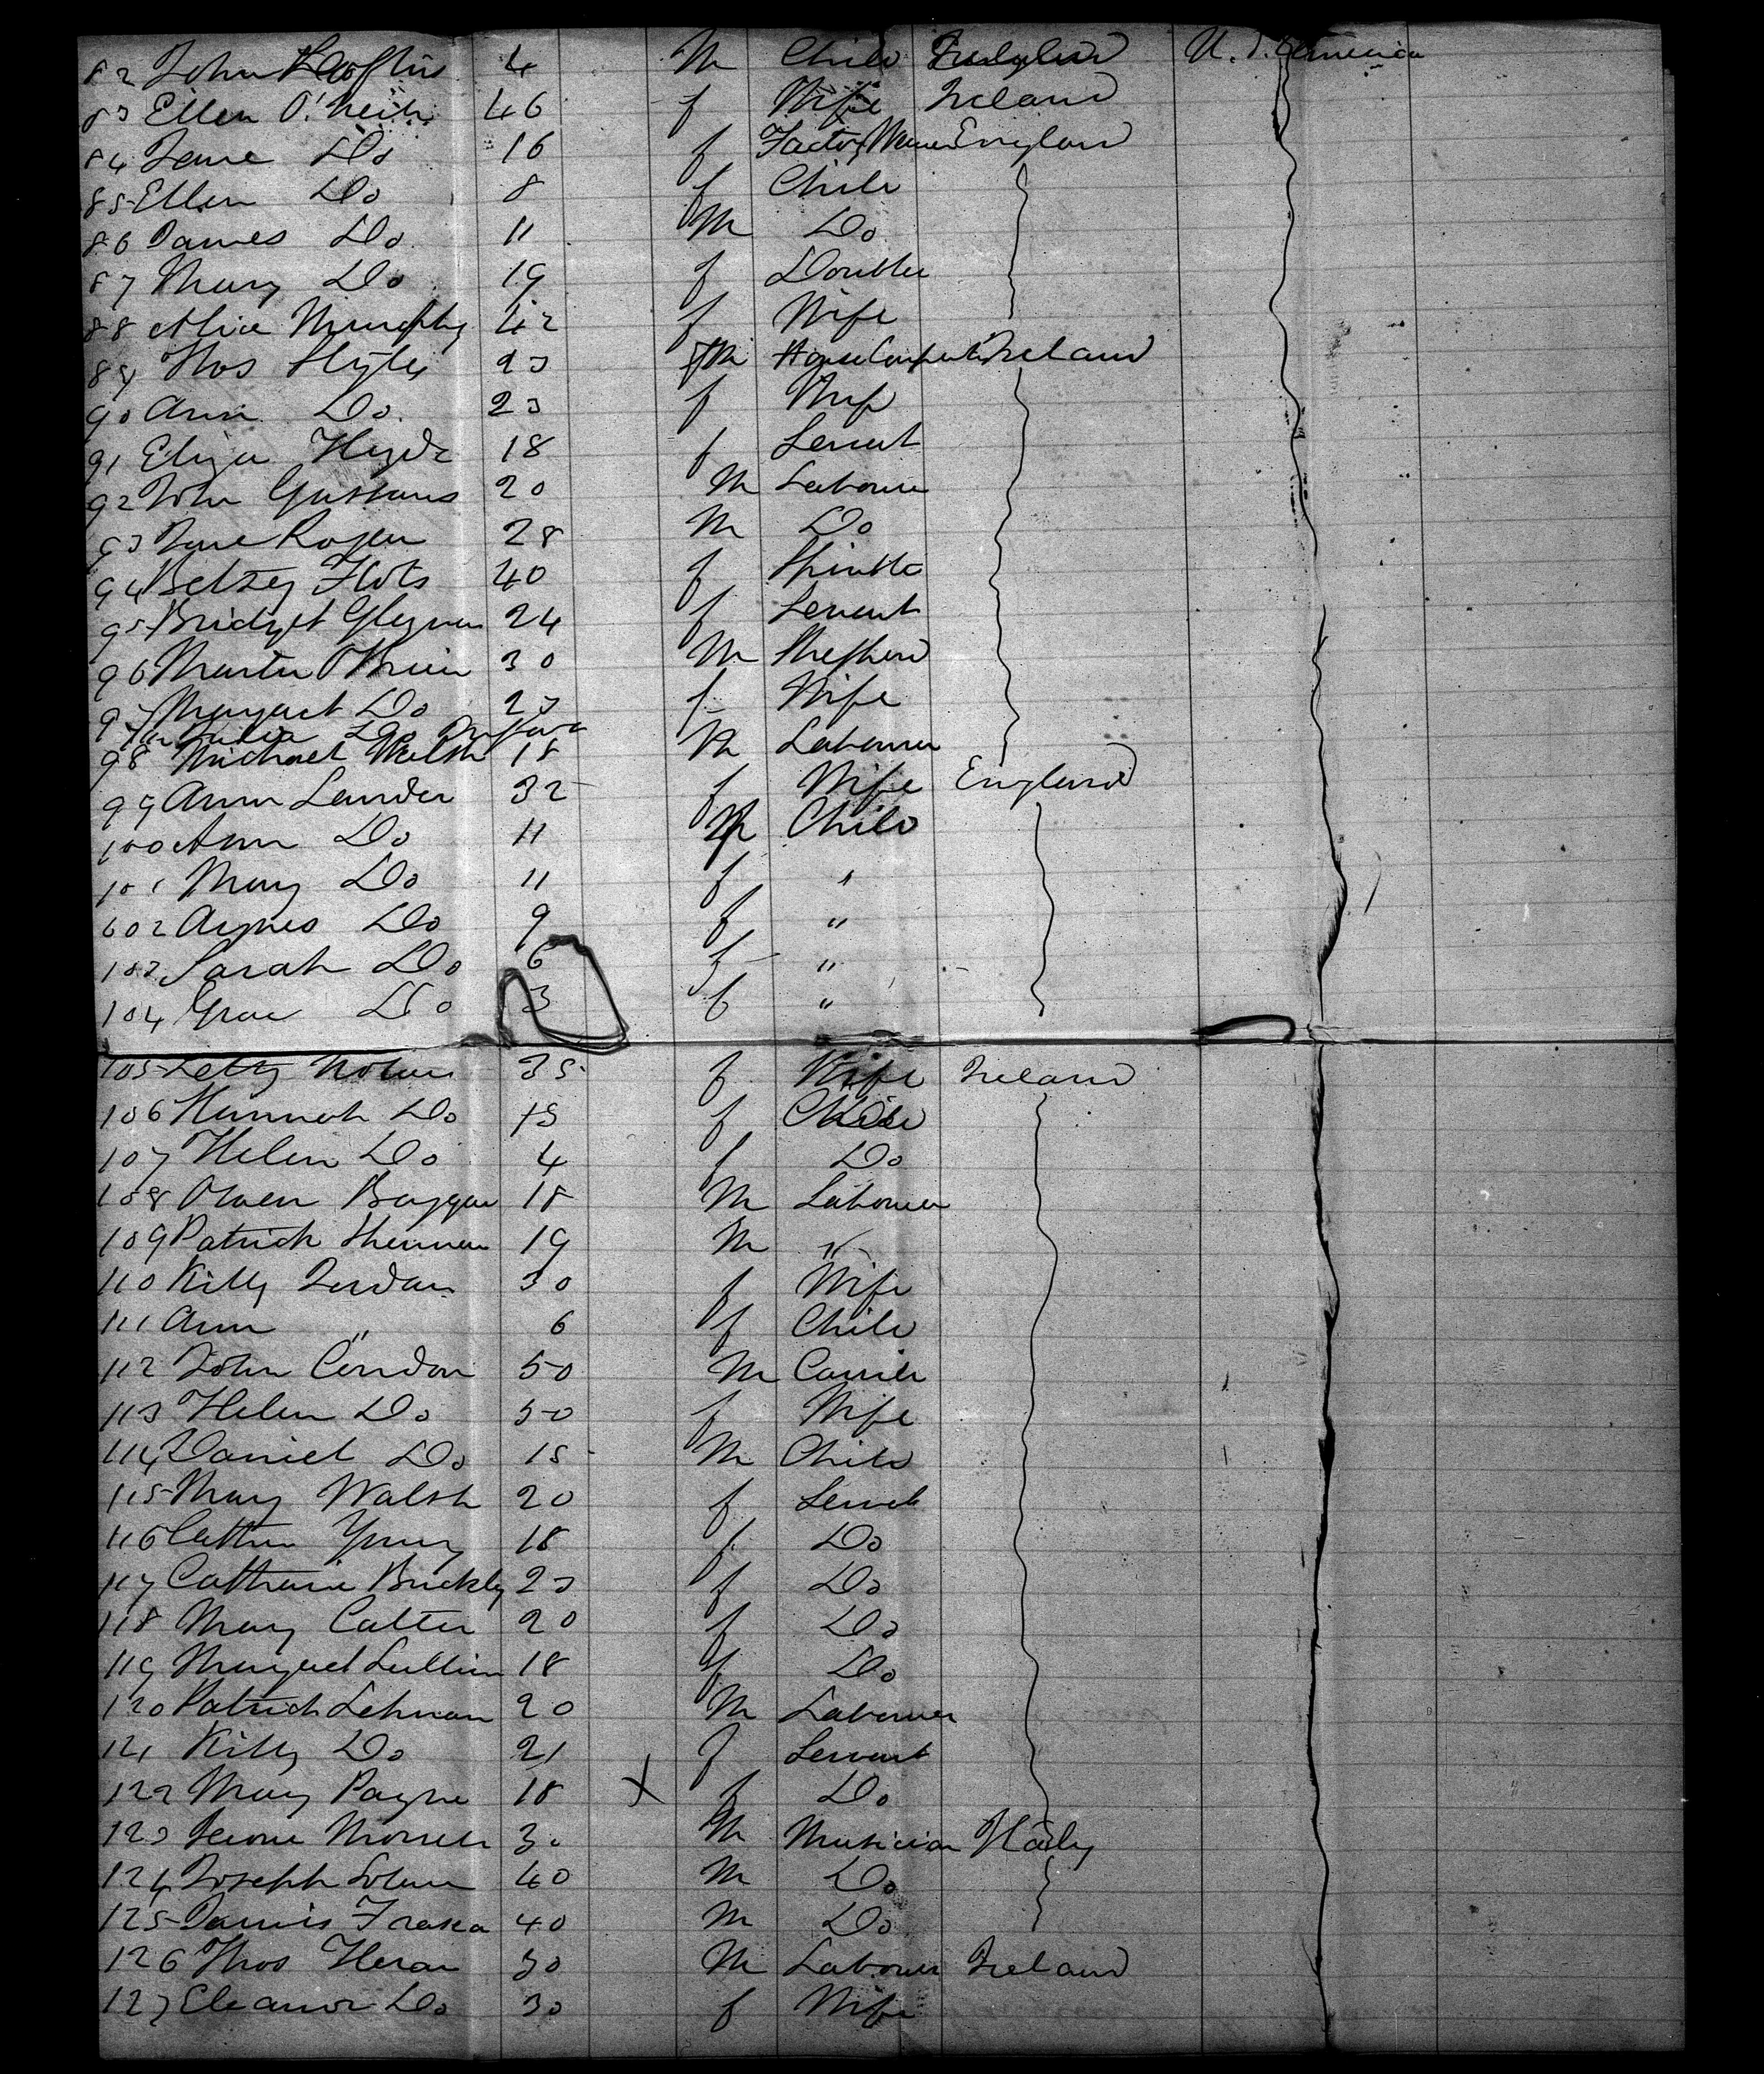 82 John 4 M Child England U. S. America
83 Ellen O'Neill 46 f Wife Ireland
84 Jane Do 16 f Factory England
85 Ellen Do 8 f Child
86 James Do 11 M Do
87 Mary Do 19 f
88 Alice Murphy 42 f Wife
89 Thos 23 M Ireland
90 Ann Do 23 f Wife
91 Eliza 18 f Servant
92 John 20 M Labourer
93 Jane Roger 28 M Do
94 Betsey 40 f
95 Bridget 24 f Servant
96 Martin O'Brien 30 M
97 Margaret Do 23 f Wife
Julia Do
98 Michael Walsh 18 M Labourer
99 Ann 32 f Wife England
100 Ann Do 11 Child
101 Mary Do 11 f "
102 Agnes Do 9 f "
103 Sarah Do 6 f "
104 Grace Do 3 f "
105 Letty Nolan 35 f Wife Ireland
106 Hannah Do 15 f Child
107 Helen Do 4 f Do
108 Owen 18 M Labourer
109 Patrick 19 M "
110 Kitty Jordan 30 f Wife
111 Ann " 6 f Child
112 John Condon 50 M
113 Helen Do 50 f Wife
114 Daniel Do 15 M Child
115 Mary Walsh 20 f Servant
116 18 f Do
117 Catherine Buckley 23 f Do
118 Mary 20 f Do
119 Margaret Sullivan 18 f Do
120 Patrick Lehman 20 M Labourer
121 Kitty Do 21 f Servant
122 Mary Payne 18 X f Do
123 30 M Musician Italy
124 Joseph 40 M Do
125 40 M Do
126 Thos 30 M Labourer Ireland
127 Eleanor Do 30 f Wife